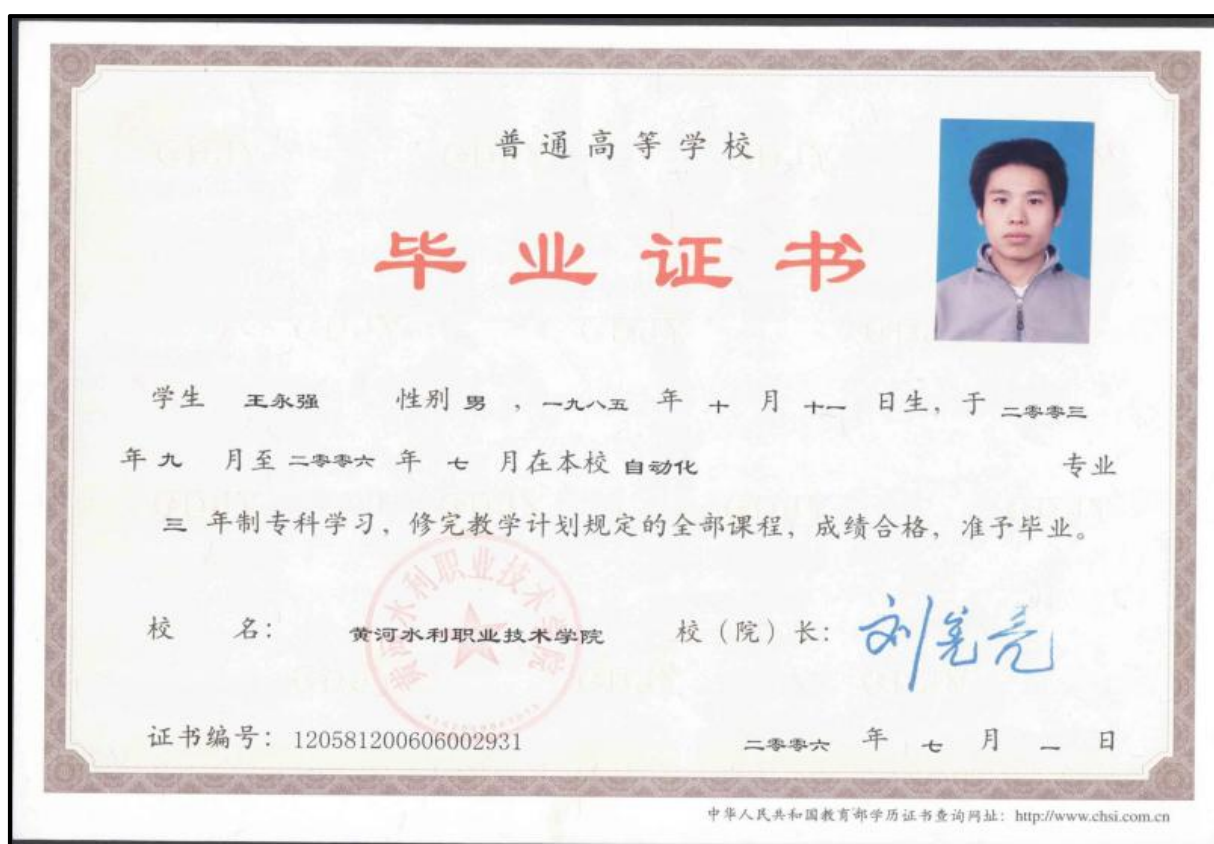 普通高等学校
毕业证书
学生 王永强 性别 男 ，一九八五 年 十 月 十一 日生，于 二零零三
年 九 月至 二零零六 年 七 月在本校 自动化 专业
三 年制专科学习，修完教学计划规定的全部课程，成绩合格，准予毕业。
黄河水利职业技术学院
校 名： 黄河水利职业技术学院 校（院）长： 刘宪亮
证书编号：120581200606002931 二零零六 年 七 月 一 日
中华人民共和国教育部学历证书查询网址：http://www.chsi.com.cn